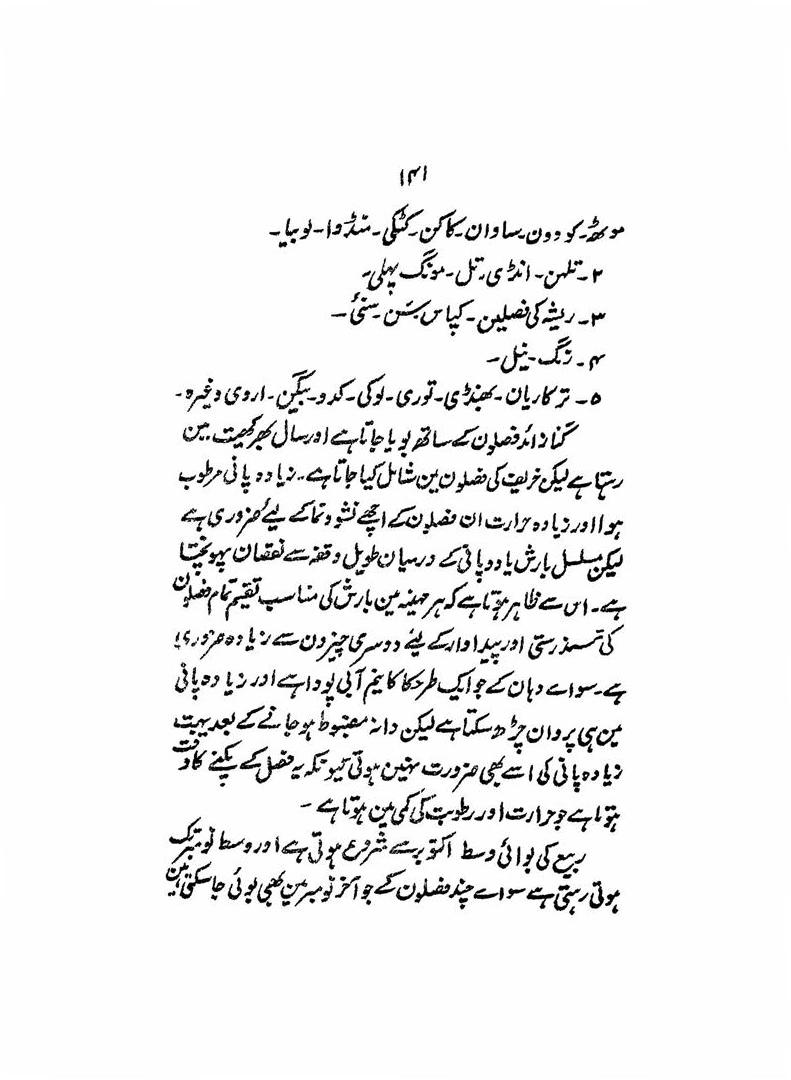 ۱۴۱
موٹھ۔ کودون۔ ساوان۔ کاکن۔ کٹکی۔ منڈوا۔ لوبیا۔
۲۔ تلہن۔ انڈی۔ تل۔ مونگ پہلی۔
۳۔ ریشہ کی فصلین۔ کپاس۔ سَن۔ سنئی۔
۴۔ رنگ۔ نیل۔
۵۔ ترکاریان۔ بھنڈی۔ توری۔ لوکی۔ کدو۔ بیگین۔ اروی وغیرہ۔
گنا زائد فصلون کے ساتھ بویا جاتا ہے اور سال بھر کھیت مین
رہتا ہے لیکن خریف کی فصلون مین شامل کیا جاتا ہے۔ زیادہ پانی مرطوب
ہوا اور زیادہ حرارت ان فصلون کے اچھے نشوونما کے لیئے ضروری ہے
لیکن مسلسل بارش یا دو پانی کے درمیان طویل وقفہ سے نقصان پہونچتا
ہے۔ اس سے ظاہر ہوتا ہے کہ ہر مہینہ مین بارش کی مناسب تقیم تمام فصلون
کی تندرستی اور پیداوار کے لیئے دوسری چیزون سے زیادہ ضروری
ہے۔ سواے دہان کے جو ایک طرح کا نیم آبی پودا ہے اور زیادہ پانی
مین ہی پروان چڑھ سکتا ہے لیکن دانہ مضبوط ہو جانے کے بعد بہت
زیادہ پانی کی اسے بھی ضرورت نہین ہوتی کیونکہ یہ فصل کے پکنے کا وقت
ہوتا ہے جو حرارت اور رطوبت کی کمی مین ہوتا ہے۔
ربیع کی بوائی وسط اکتوبر سے شروع ہوتی ہے اور وسط نومبر تک
ہوتی رہتی ہے سواے چند فصلون کے جو آخر نومبر مین بھی بوئی جا سکتی ہین